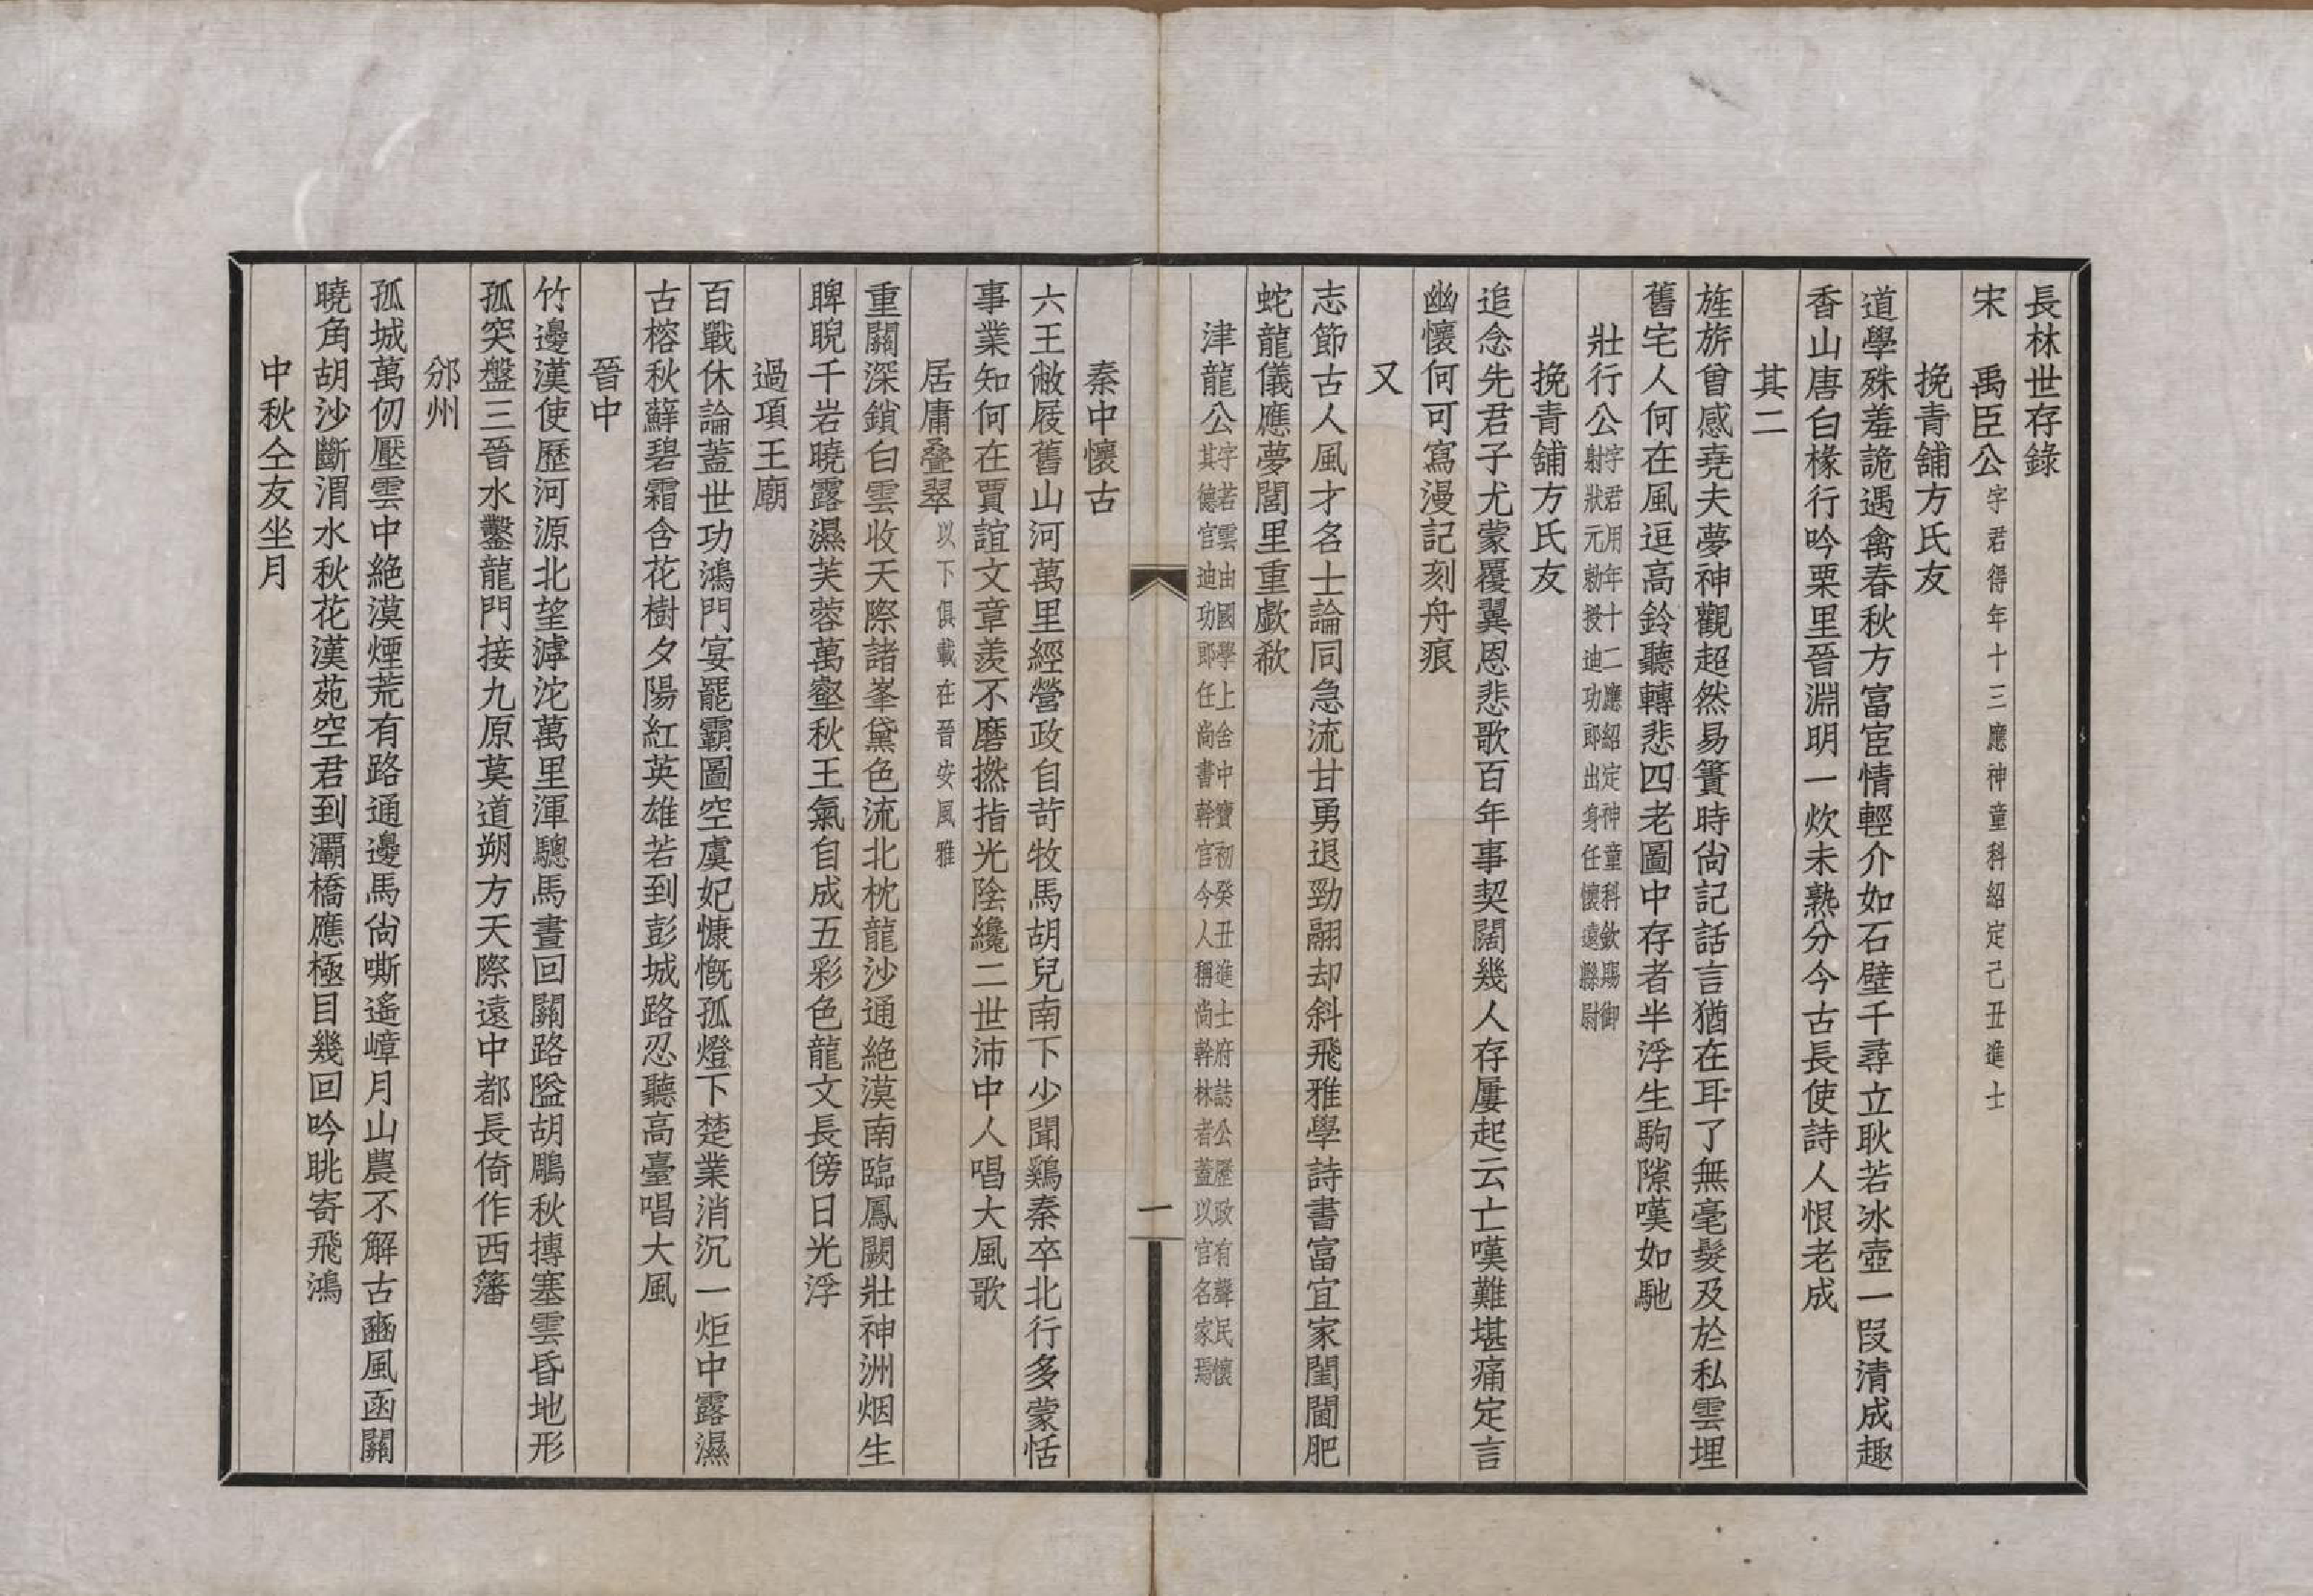 長林世存錄
宋　禹臣公字君得年十三應神童科紹定己丑進士
挽青舖方氏友
道學殊羞詭遇禽春秋方富宦情輕介如石壁千尋立耿若冰壺一段清成趣
香山唐白椽行吟栗里晉淵明一炊未熟分今古長使詩人恨老成
其二
旌旂曾感堯夫夢神觀超然易簀時尙記話言猶在耳了無毫髮及於私雲埋
舊宅人何在風逗高鈴聽轉悲四老圖中存者半浮生駒隙嘆如馳
壯行公字君用年十二應紹定神童科欽賜御射狀元勑授迪功郎出身任懷遠縣尉
挽青舖方氏友
追念先君子尤蒙覆翼恩悲歌百年事契闊幾人存屢起云亡嘆難堪痛定言
幽懷何可寫漫記刻舟痕
又
志節古人風才名士論同急流甘勇退勁翮却斜飛雅學詩書富宜家閨閫肥
蛇龍儀應夢閭里重歔欷
津龍公字若雲由國學上舍中寶初癸丑進士府誌公歷政有聲民懷其德官迪功郎任尙書幹官今人稱尙幹林者蓋以官名家焉
一
秦中懷古
六王敝屐舊山河萬里經營政自苛牧馬胡兒南下少聞鷄秦卒北行多蒙恬
事業知何在賈誼文章羨不磨撚指光陰纔二世沛中人唱大風歌
居庸叠翠以下俱載在晉安風雅
重關深鎖白雲收天際諸峯黛色流北枕龍沙通絕漠南臨鳳闕壯神洲烟生
睥睨千岩曉露濕芙蓉萬壑秋王氣自成五彩色龍文長傍日光浮
過項王廟
百戰休論蓋世功鴻門宴罷霸圖空虞妃慷慨孤燈下楚業消沉一炬中露濕
古榕秋蘚碧霜含花樹夕陽紅英雄若到彭城路忍聽高臺唱大風
晉中
竹邊漢使歷河源北望滹沱萬里渾驄馬晝回關路隘胡鵰秋摶塞雲昏地形
孤突盤三晉水鑿龍門接九原莫道朔方天際遠中都長倚作西籓
邠州
孤城萬仞壓雲中絕漠煙荒有路通邊馬尙嘶遙嶂月山農不解古豳風函關
曉角胡沙斷渭水秋花漢苑空君到灞橋應極目幾回吟眺寄飛鴻
中秋仝友坐月